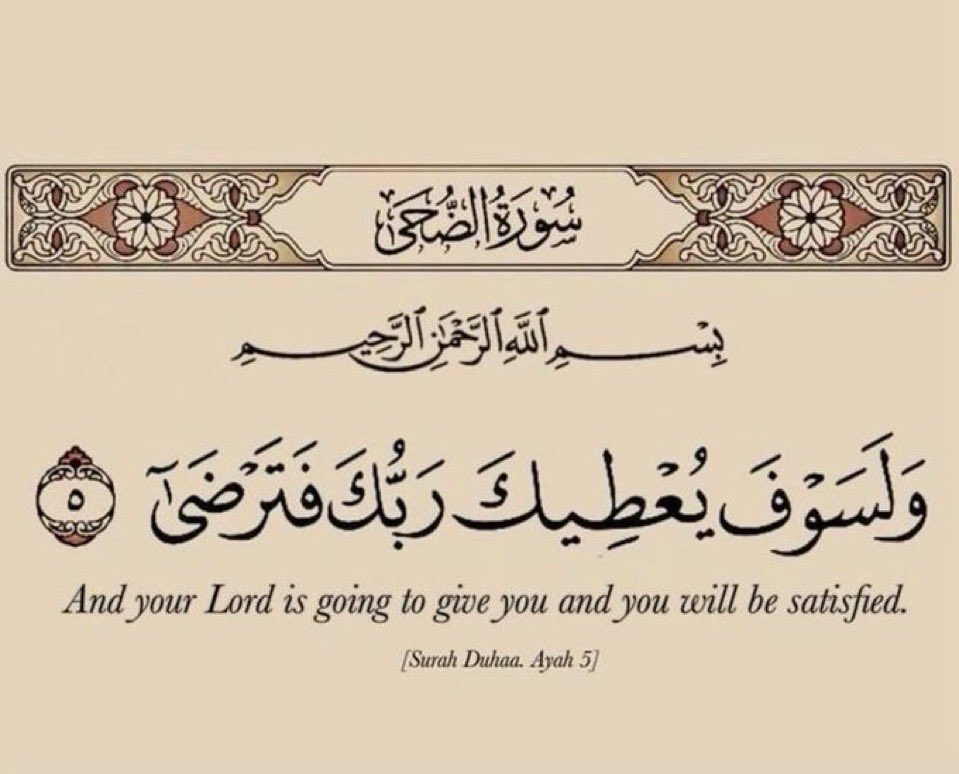 سُورَةُ الضُّحَى
بِسْمِ ٱللَّهِ ٱلرَّحْمَٰنِ ٱلرَّحِيمِ
وَلَسَوْفَ يُعْطِيكَ رَبُّكَ فَتَرْضَىٰٓ ٥
And your Lord is going to give you and you will be satisfied.
[Surah Duhaa. Ayah 5]